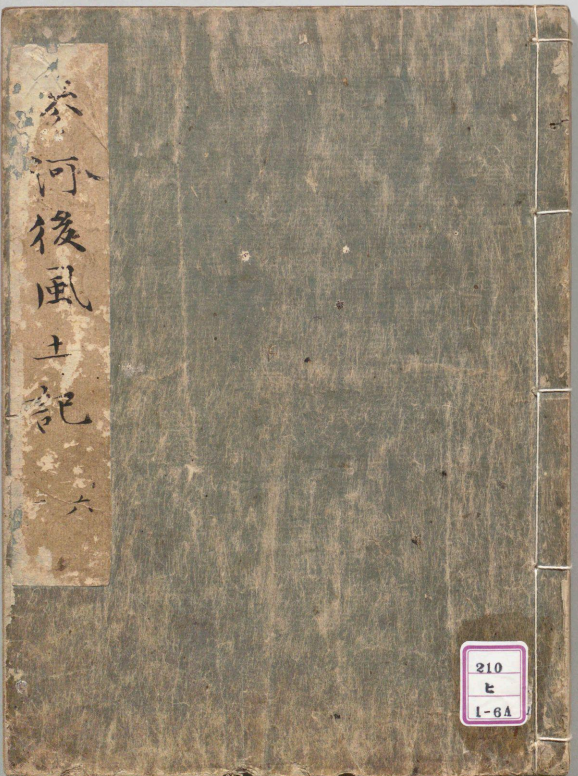 参河後風土記
六
210
ヒ
1-6A